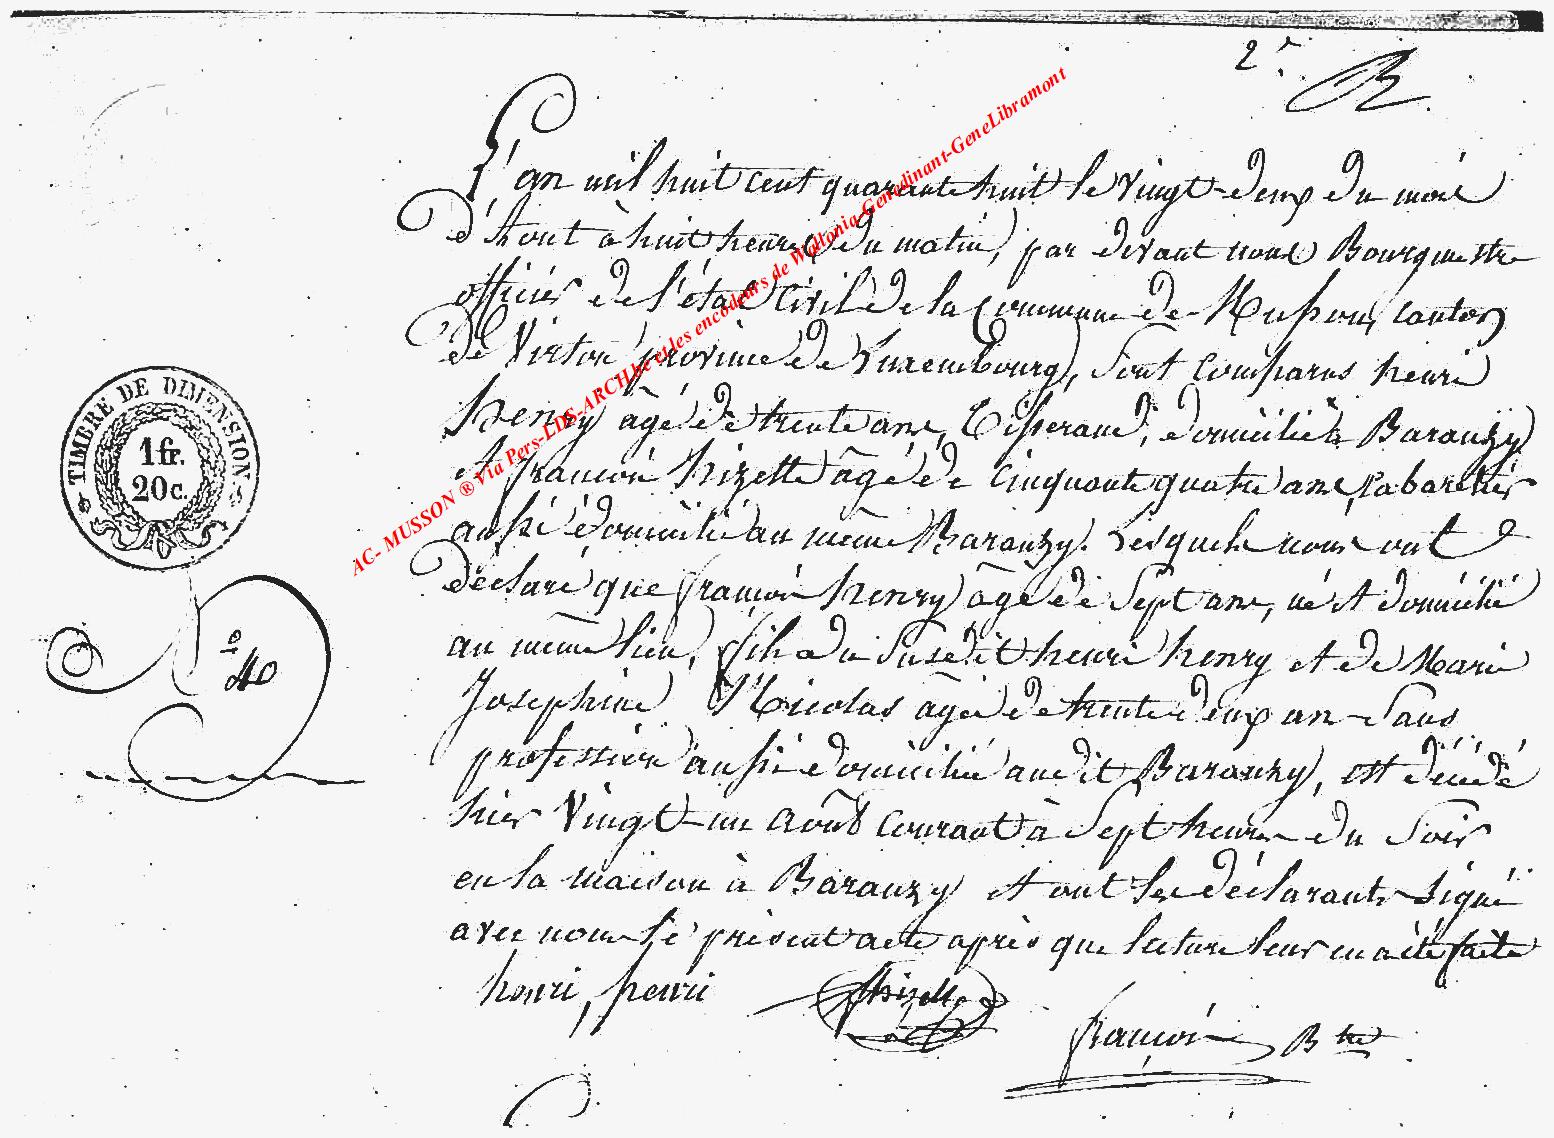 2e
B
L'an mil huit cent quarante huit le vingt-deux du mois
d'Aout à huit heures du matin, par devant nous Bourgmestre
officier de l'état Civil de la Commune de Musson, canton
de Virton province de Luxembourg, sont comparus henri
henry âgé de trente ans, Tisserand, domicilié à Baranzy
et françois hizette âgé de cinquante quatre ans, Cabaretier
aussi domicilié au même Baranzy. Lesquels nous ont
déclaré que françois henry âgé de sept ans, né et domicilié
au même lieu, fils du susedit henri henry et de Marie
Josephine Nicolas âgée de trente deux ans sans
profession aussi domiciliée audit Baranzy, est décédé
hier vingt-un Août courant à sept heures du soir
en la maison à Baranzy et ont les déclarants signé
avec nous le présent acte après que lecture leur en a été faite
henri, henri
fhizette
françois Btre
TIMBRE DE DIMENSION
1 fr.
20 c.
No
40
AC- MUSSON ® Via Pers-LDS-ARCH.be et les encodeurs de Wallonia-Genedinant-GeneLibramont